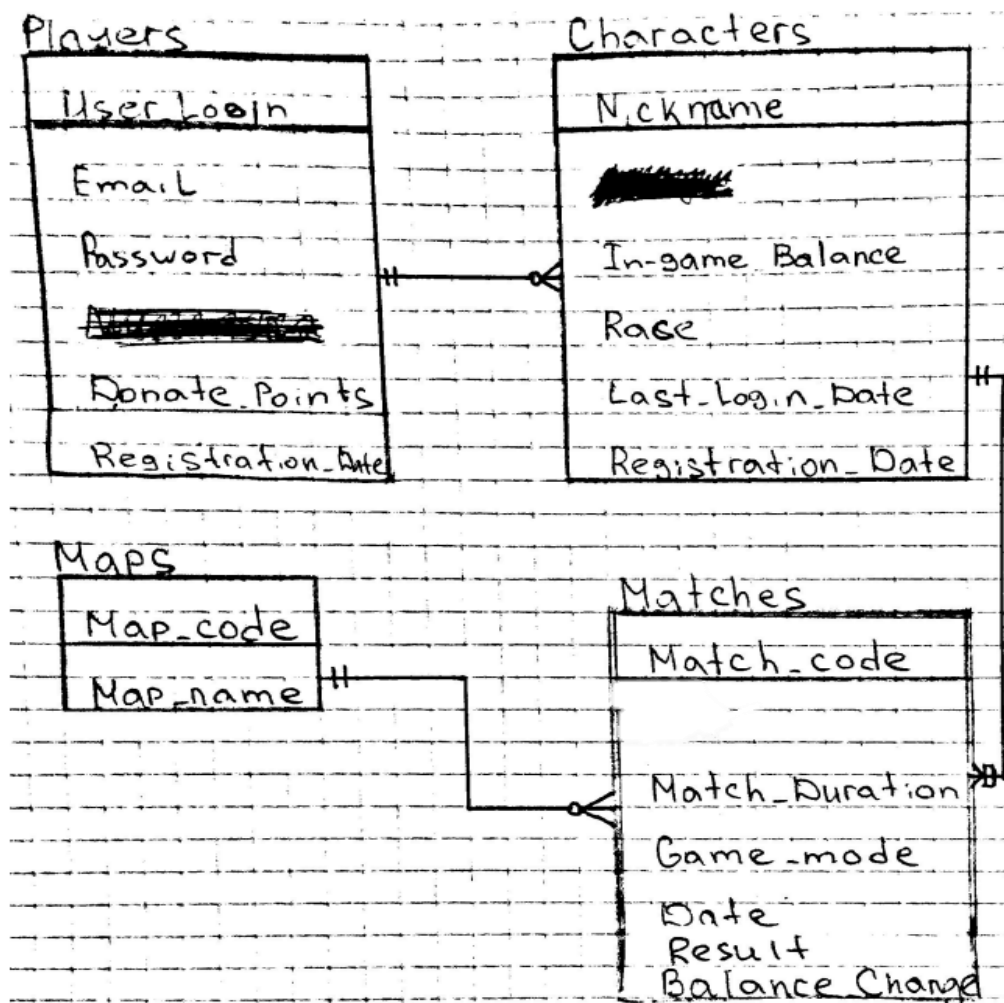 Players
User_Login
Email
Password
Donate_Points
Registration_Date
Characters
Nickname
In-game Balance
Rase
Last_Login_Date
Registration_Date
Maps
Map_code
Map_name
Matches
Match_code
Match_Duration
Game_mode
Date
Result
Balance_Change